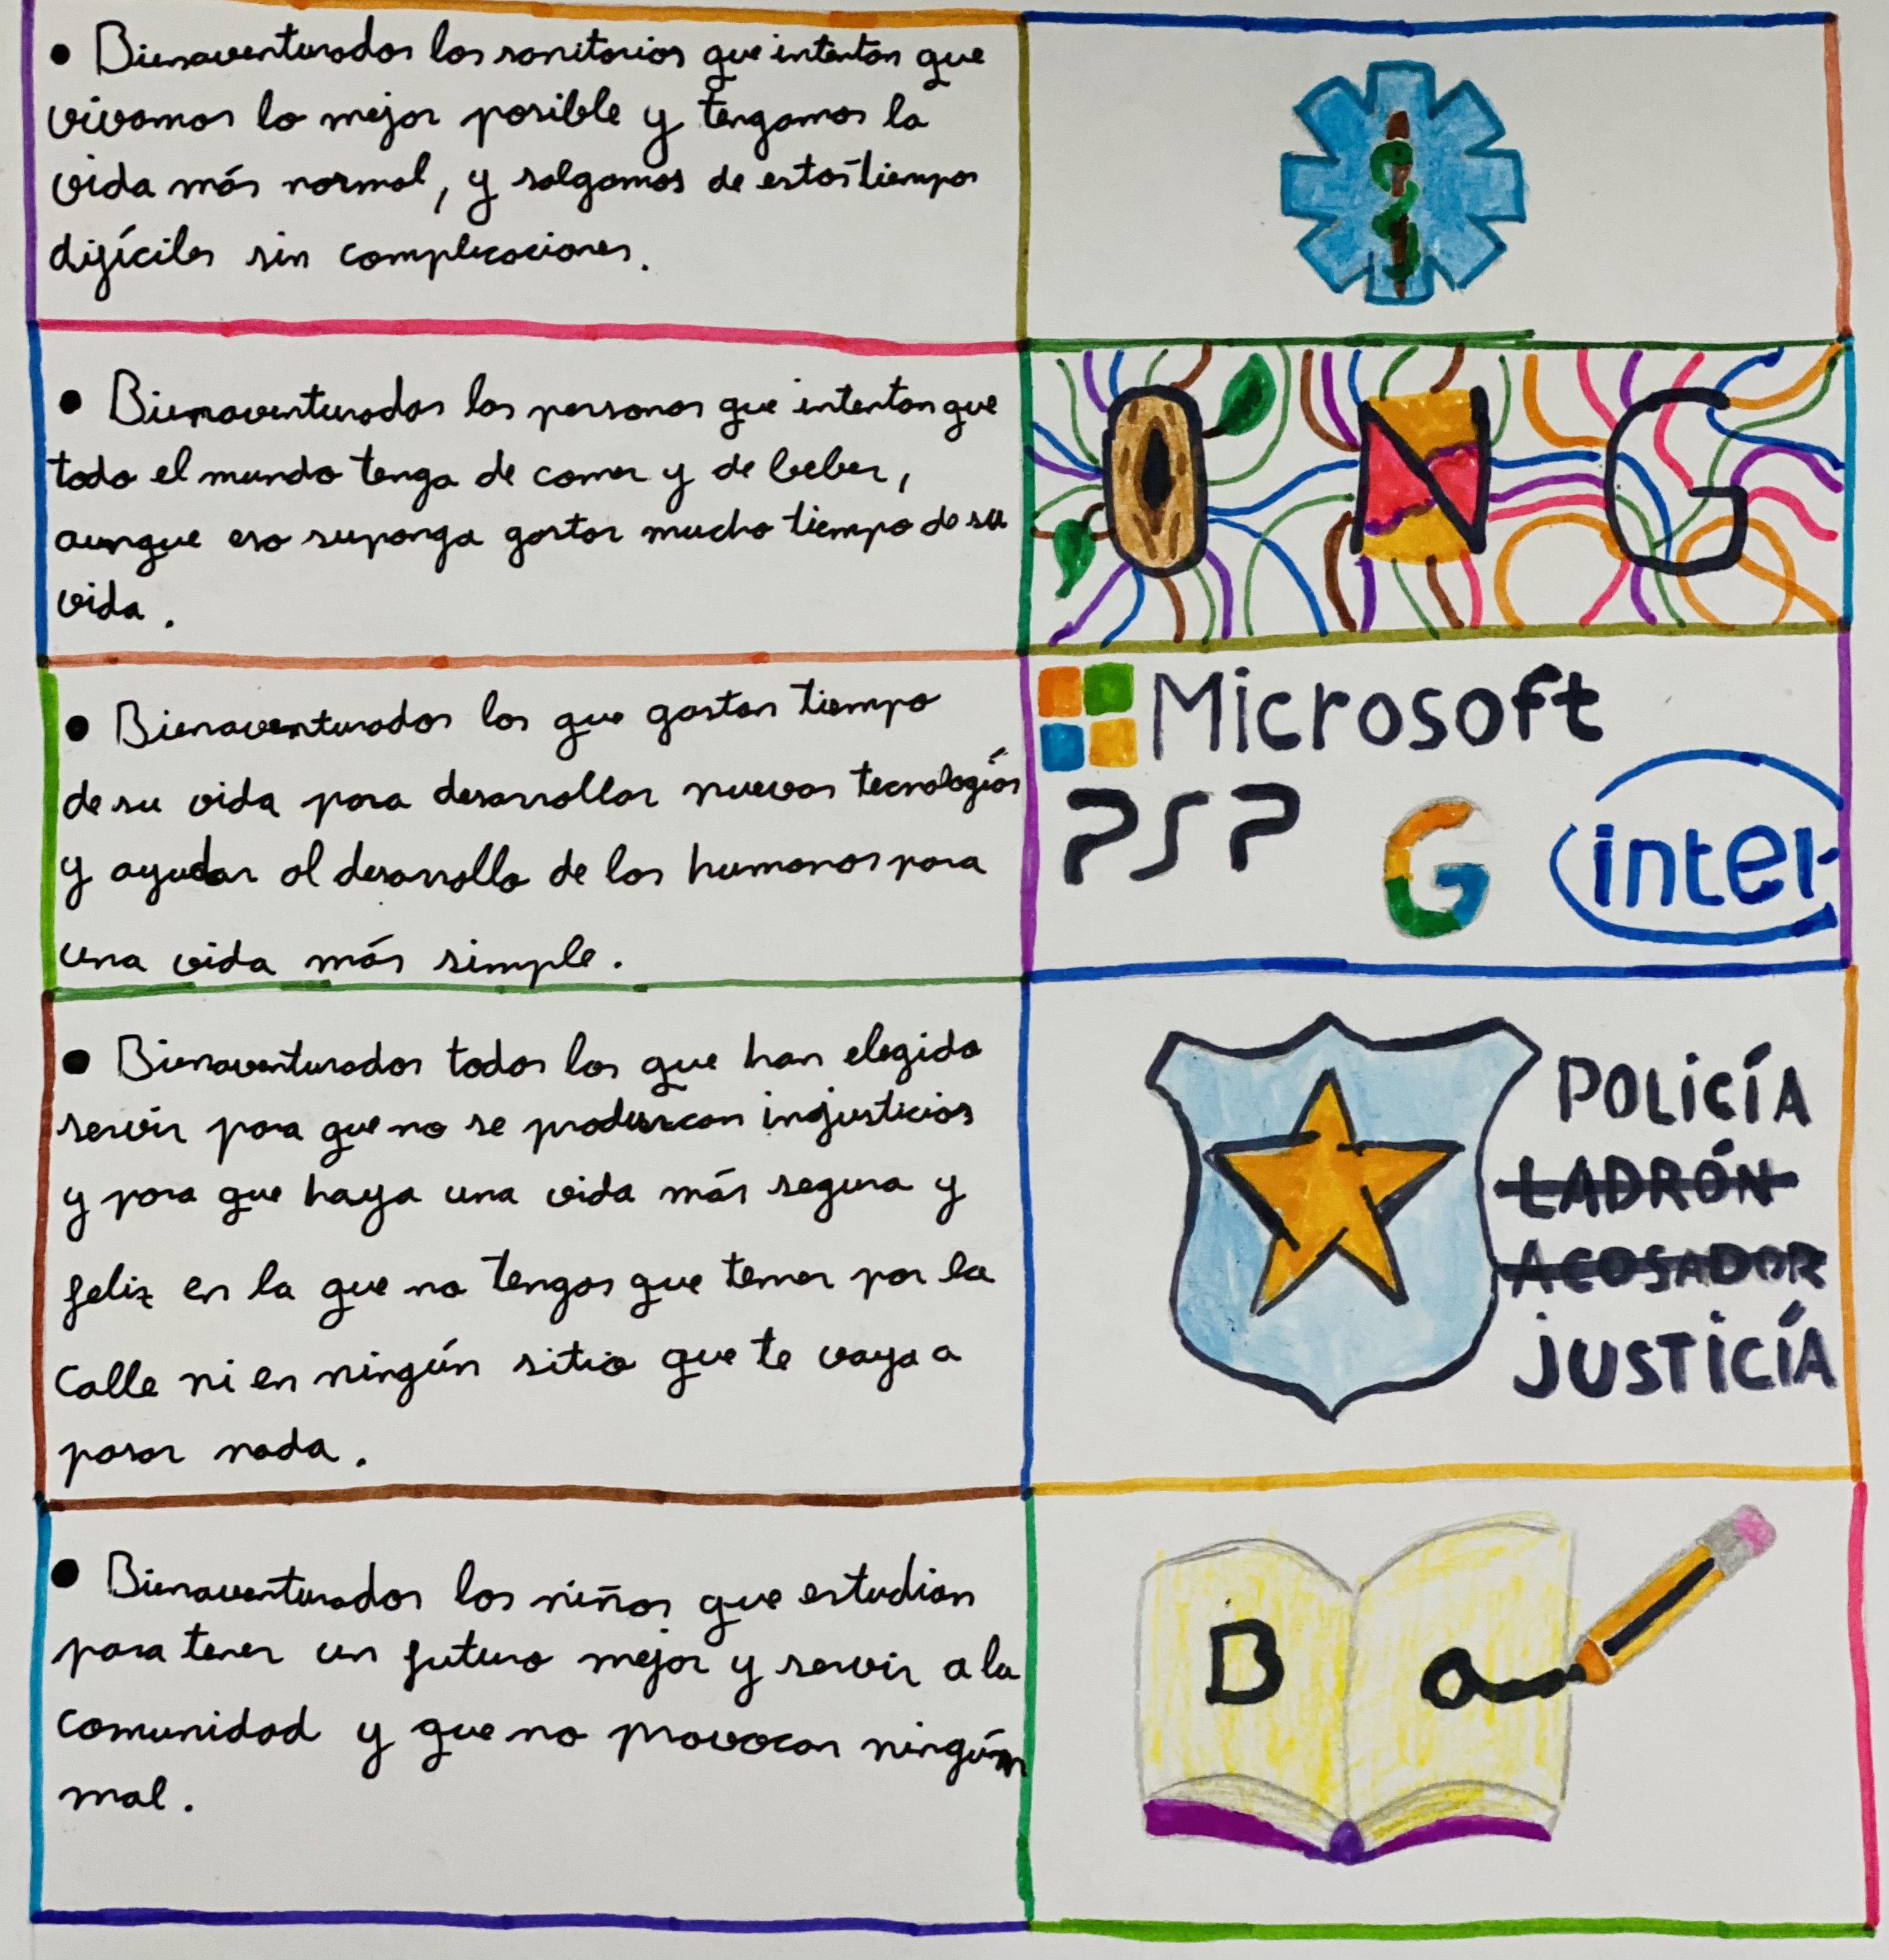 • Bienaventurados los sanitarios que intentan que
vivamos lo mejor posible y tengamos la
vida más normal, y salgamos de estos tiempos
difíciles sin complicaciones.
ONG
• Bienaventurados las personas que intentan que
todo el mundo tenga de comer y de beber,
aunque eso suponga gastar mucho tiempo de su
vida.
• Bienaventurados los que gastan tiempo
de su vida para desarrollar nuevas tecnologías
y ayudar al desarrollo de los humanos para
una vida más simple.
Microsoft
PSP
G
intel
• Bienaventurados todos los que han elegido
servir para que no se produzcan injusticias
y para que haya una vida más segura y
feliz en la que no tengas que temer por la
calle ni en ningún sitio que te vaya a
pasar nada.
POLICÍA
LADRÓN
ACOSADOR
JUSTICÍA
• Bienaventurados los niños que estudian
para tener un futuro mejor y servir a la
comunidad y que no provocan ningún
mal.
B a